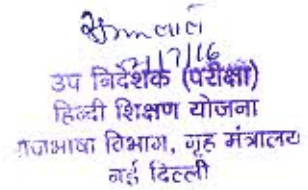 लाल
7/16
उप निर्देशक (परीक्षा)
हिन्दी शिक्षण योजना
राजभाषा विभाग, गृह मंत्रालय
नई दिल्ली